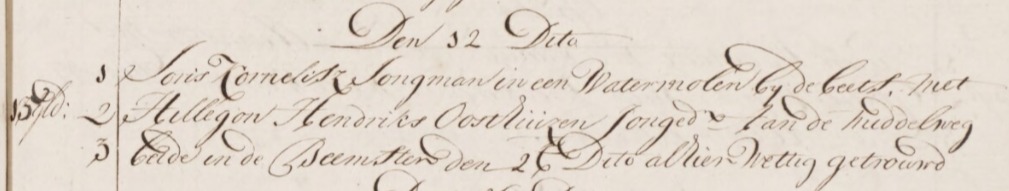 Den 12 Dito
1 Joris Cornelisz Jongman in een Watermolen by de beets, met
15 gld: 2 Hillegon Hendriks Oosthuizen Jonged:r aan de middelweg
3 beide in de Beemster den 26 Dito alhier Wettig getrouwd